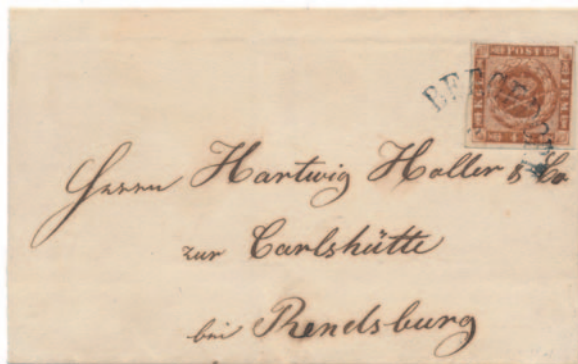 KGL POST FRM
4 S
BERGEDORF
Herrn Hartwig Holler & Co
zur Carlshütte
bei Rendsburg